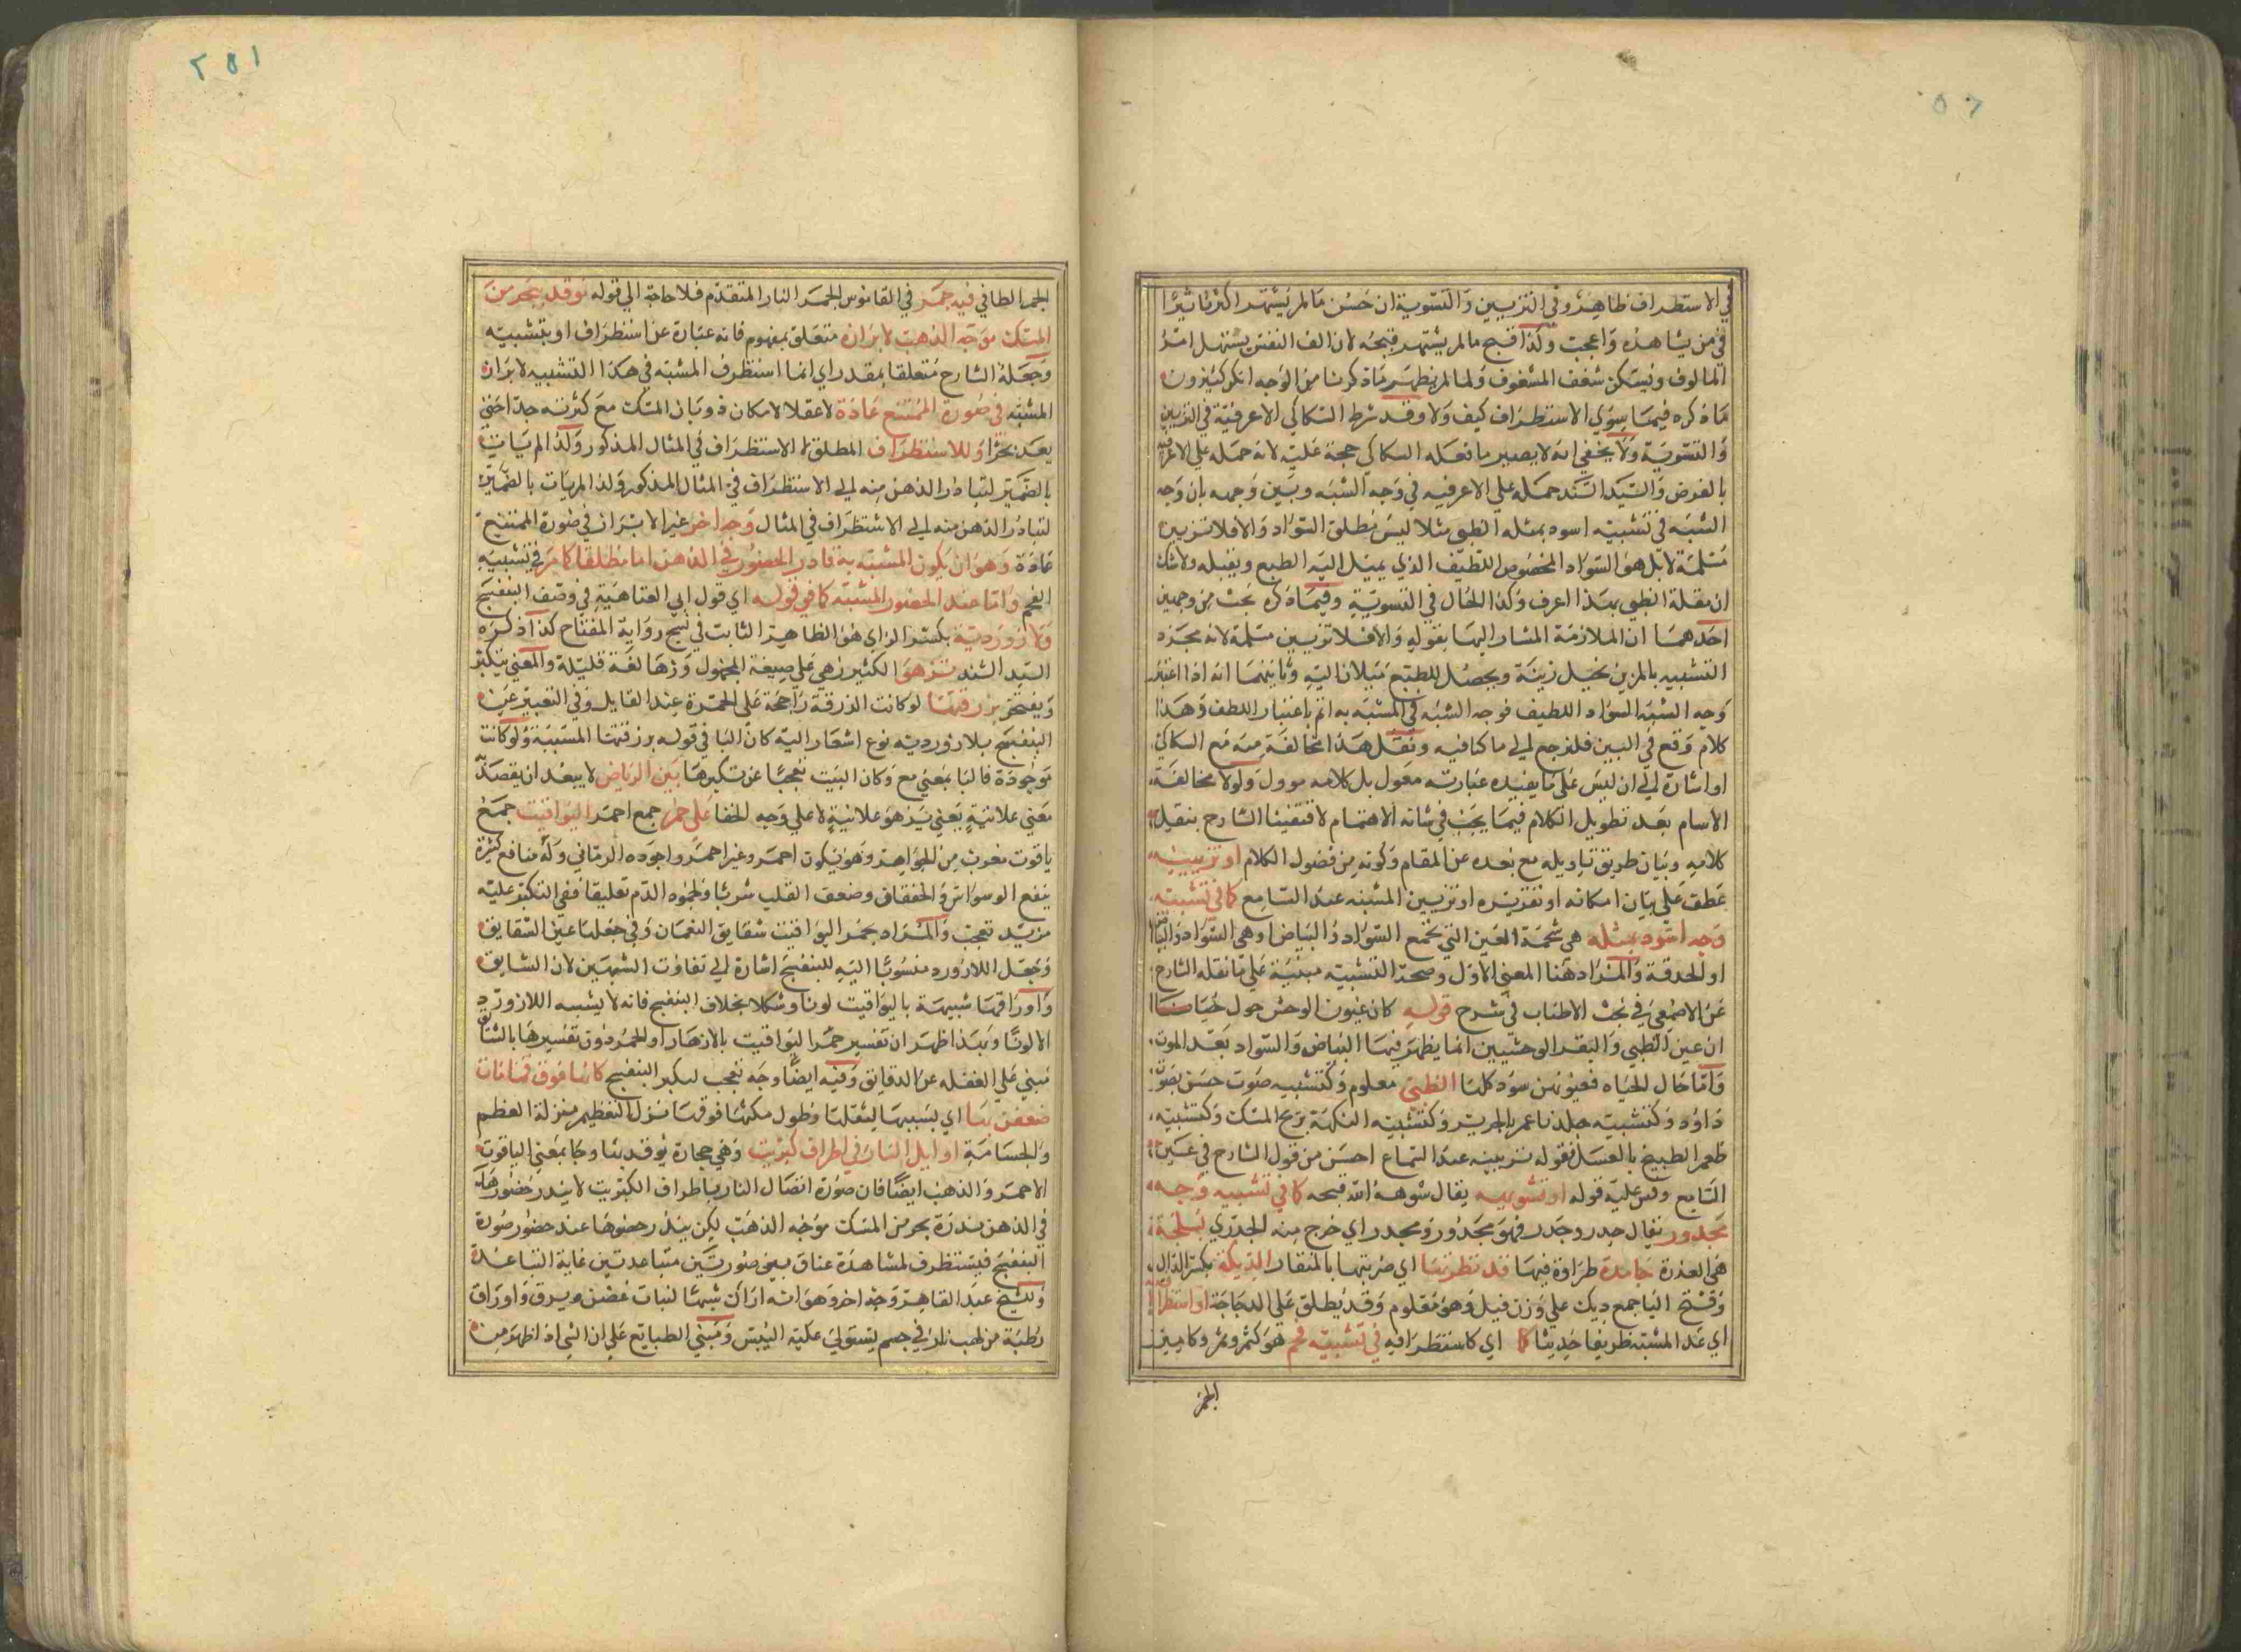 في الاستطراف ظاهر وفي التزيين والتسوية ان حسن مالم يشتهر اكثر تاثيرا
في من يشاهده واعجب وكذا قبح مالم يشتهر قبحه لان الف النفس يستهل امر
المالوف ويسكن شغف المشغوف ولما لم يظهر ماذكرنا من الوجه انكر كثيرون
ماذكره فيما سوي الاستطراف كيف ولا وقد شرط السكاكي الاعرفية في التزيين
والتسوية ولا يخفي انه لا يصير ما فعله السكاكي حجة عليه لانه حمله علي الاعرفية
بالفرض والسيد السند حمله علي الاعرفيه في وجه الشبه وبين وجهه بان وجه
الشبه في تشبيه اسود بمثله الظبي مثلا ليس مطلق السواد والا فلا تزيين
مسلمة لا بل هو السواد المخصوص اللطيف الذي يميل اليه الطبع ويقبله ولا شك
ان مقلة الظبي بهذا اعرف وكذا الحال في التسوية وفيما ذكره بحث من وجهين
احدهما ان الملازمة المشار اليها بقوله والا فلا تزيين مسلمة لانه بمجرد
التشبيه بالمزين يخيل زينة ويحصل للطبع ميلانا اليه وثانيهما انه اذا اعتبر
وجه الشبه السواد اللطيف فوجه الشبه في المشبه به اتم باعتبار اللطف وهذا
كلام وقع في البين فلنرجع الي ما كنا فيه ونقل هذا مخالفة منه مع السكاكي
او اشارة الي ان ليس علي ما يفيده عبارته معول بل كلامه موول ولولا مخالفة
الاسام بعد تطويل الكلام فيما يجب في شانه الاهتمام لاقتفينا الشارح بنقل
كلامه وبيان طريق تاويله مع بعده عن المقام وكونه من فضول الكلام او تزيينه
عطف علي بيان امكانه او تقريره او تزيين المشبه عند السامع كما في تشبيه
وجه اسود بمثله هي شحمة العين التي تجمع السواد والبياض او هي السواد والبياض
او الحدقة والمراد هنا المعني الاول وصحة التشبيه مبنية علي ما نقله الشارح
عن الاصمعي في بحث الاطناب في شرح قوله كان عيون الوحش حول خبائنا
ان عين الظبي والبقر الوحشيين انما يظهر فيها البياض والسواد بعد الموت
واما حال الحياه فعيونهن سود كلها الظبي معلوم وكتشبيه صوت حسن بصوت
داود وكتشبيه جلد ناعم بالحرير وكتشبيه النكهة بريح المسك وكتشبيه
طعم الطبيخ بالعسل فقوله تزيينه عند السماع احسن من قول الشارح في عين
السامع وقس عليه قوله او تشويهه يقال شوهه الله قبحه كما في تشبيه وجه
مجدور يقال جدر وجدر فهو مجدور ومجدر اي خرج منه الجدري بسلحة
هي العذرة جامدة طراوة فيها قد نقرتها اي ضربتها بالمنقار الديكة بكسر الدال
وفتح اليا جمع ديك علي وزن فيل وهو معلوم وقد يطلق علي الدجاجة او استطرافه
اي عد المشبه ظريفا حديثا كما اي كاستطرافه في تشبيه فحم هو كثمر وثمر وكامير
الجمر
١٥٢
الجمر الطافي فيه جمر في القاموس الجمر النار المتقدم فلا حاجة الي قوله موقد ببحر من
المسك موجه الذهب لابرازه متعلق بمفهوم فانه عبارة عن استطراف او بتشبيه
وجعله الشارح متعلقا بمقدر اي انما استظرف المشبه في هذا التشبيه لابراز
المشبه في صورة الممتنع عادة لا عقلا لامكان ذوبان المسك مع كثرته جدا حتي
يعد بحرا وللاستطراف المطلق لا الاستظراف في المثال المذكور ولذا لم يات
بالضمير لتبادر الذهن منه الي الاستظراف في المثال المذكور ولذا لم يات بالضمير
لتبادر الذهن منه الي الاستظراف في المثال وجه اخر غير الابراز في صورة الممتنع
عادة وهو ان يكون المشبه به نادر الحضور في الذهن اما مطلقا كما مر في تشبيه
الفحم واما عند الحضور المشبه كما في قوله اي قول ابي العتاهية في وصف البنفسج
ولازوردية بكسر الزاي هو الظاهر الثابت في نسخ رواية المفتاح كذا ذكره
السيد السند تزهو الكثير زهي علي صيغة المجهول وزها لغة قليلة والمعني يتكبر
ويفتخر بزرقتها لو كانت الزرقة راجحة علي الحمرة عند القايل وفي التعبير عن
البنفسج بلازوردية نوع اشعار اليه كان البا في قوله بزرقتها المسببية ولو كانت
موجودة فالبا بمعني مع وكان البيت تعجبا عن تكبرها بين الرياض لا يبعد ان يقصد
معني علانية يعني يزهو علانية لا علي وجه الخفا علي حمر جمع احمر اليواقيت جمع
ياقوت معرب من الجواهر وهو يكون احمر وغير احمر واجوده الرماني وله منافع كثيرة
ينفع الوسواس والخفقان وضعف القلب شربا ولجموه الدم تعليقا ففي التكبر عليه
مزيد تعجب والمراد بحمر اليواقيت شقايق النعمان وفي جعلها عين الشقايق
وجعل اللازورد منسوبا اليه للبنفسج اشارة الي تفاوت الشبهين لان الشقايق
واوراقها شبيهة باليواقيت لونا وشكلا بخلاف البنفسج فانه لا يشبه اللازورد
الا لونا وبهذا ظهر ان تفسير حمر اليواقيت بالازهار او الحمر دون تفسيرها بالشقايق
مبني علي الغفله عن الدقايق وفيه ايضا وجه تعجب لتكبر البنفسج كانها فوق قامات
ضعفن بها اي بسببها لثقلها وطول مكثها فوقها نزل التعظيم منزلة العظم
والجسامة اوايل النار في اطراف كبريت وهي حجارة يوقد بها وجا بمعني الياقوت
الاحمر والذهب ايضا فان صورة اتصال النار باطراف الكبريت لا يندر حضورها
في الذهن ندرة بحر من المسك موجه الذهب لكن يندر حضورها عند حضور صورة
البنفسج فيستظرف لمشاهدة عناق بين صورتين متباعدتين غاية التباعد
وللشيخ عبد القاهر وجه اخر وهو انه اراك شبها لنبات غض يرق واوراق
رطبة من لهب نار في جسم يستولي عليه اليبس ومبني الطبايع علي ان الشي اذا ظهر من